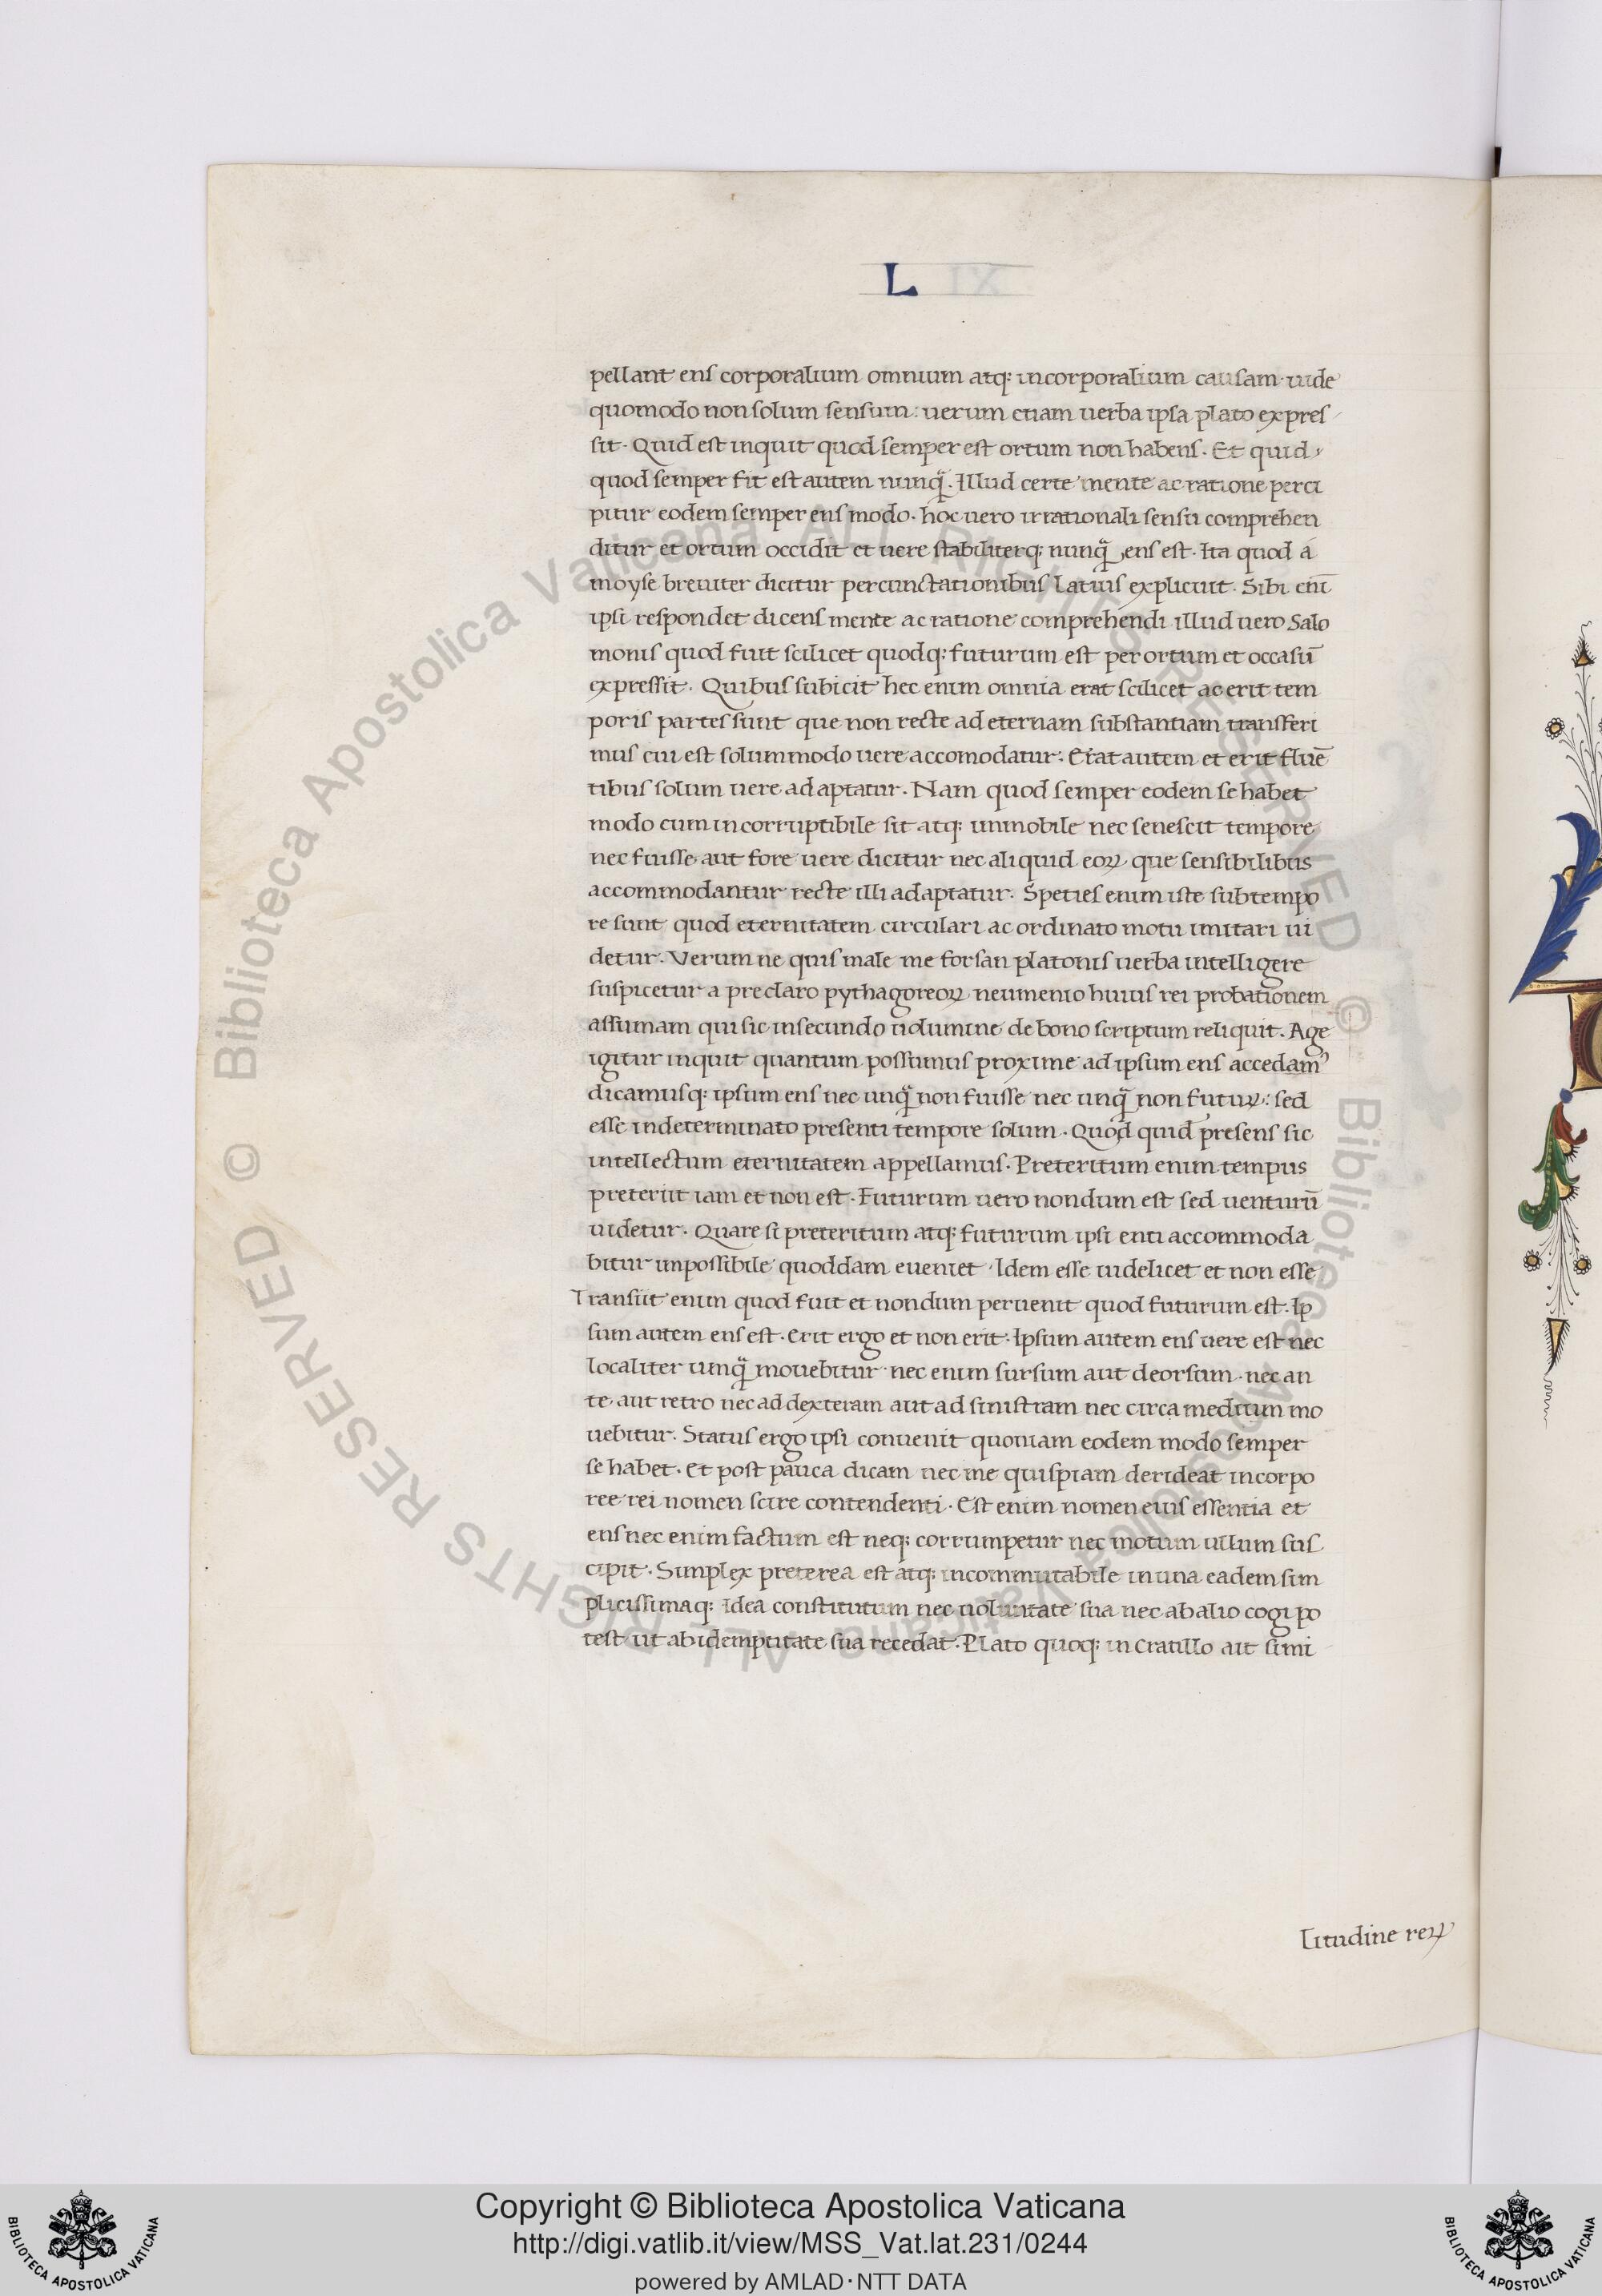 L
pellant ens corporalium omnium atq; incorporalium causam uide
quomodo non solum sensum: uerum etiam uerba ipsa plato expres
sit. Quid est inquit quod semper est ortum non habens. Et quid
quod semper fit est autem nunq̃. Illud certe mente ac ratione perci
pitur eodem semper ens modo. hoc uero irrationali sensu comprehen
ditur et ortum occidit et uere stabiliterq; nunq̃ ens est. Ita quod a
moyse breuiter dicitur percunctationibus latius explicuit. Sibi eni̅
ipsi respondet dicens mente ac ratione comprehendi illud uero Salo
monis quod fuit scilicet quodq; futurum est per ortum et occasu̅
expressit. Quibus subicit hec enim omnia erat scilicet ac erit tem
poris partes sunt que non recte ad eternam substantiam transferi
mus cui est solummodo uere accomodatur. Erat autem et erit flue̅
tibus solum uere adaptatur. Nam quod semper eodem se habet
modo cum incorruptibile sit atq; immobile nec senescit tempore
nec fuisse aut fore uere dicitur nec aliquid eoꝝ que sensibilibus
accommodantur recte illi adaptatur. Speties enim iste sub tempo
re sunt quod eternitatem circulari ac ordinato motu imitari ui
detur. Verum ne quis male me forsan platonis uerba intelligere
suspicetur a preclaro pythagoreoꝝ neumenio huius rei probationem
assumam qui sic in secundo uolumine de bono scriptum reliquit. Age
igitur inquit quantum possumus proxime ad ipsum ens accedamꝰ
dicamusq; ipsum ens nec unq̃ non fuisse nec unq̃ non futuꝝ: sed
esse indeterminato presenti tempore solum. Quod quid presens sic
intellectum eternitatem appellamus. Preteritum enim tempus
preteriit iam et non est. Futurum uero nondum est sed uenturu̅
uidetur. Quare si preteritum atq; futurum ipsi enti accommoda
bitur impossibile quoddam eueniet. Idem esse uidelicet et non esse
Transiit enim quod fuit et nondum peruenit quod futurum est. Ip
sum autem ens est. erit ergo et non erit. Ipsum autem ens uere est nec
localiter unq̃ mouebitur nec enim sursum aut deorsum. nec an
te aut retro nec ad dexteram aut ad sinistram nec circa meditun mo
uebitur. Status ergo ipsi conuenit quoniam eodem modo semper
se habet. Et post pauca dicam nec me quispiam derideat incorpo
ree rei nomen scire contendenti. Est enim nomen eius essentia et
ens nec enim factum est neq; corrumpetur nec motum ullum sus
cipit. Simplex preterea est atq; incommutabile in una eadem sim
plicissimaq; idea constitutum nec uoluntate sua nec ab alio cogi po
test ut ab idemptitate sua recedat. Plato quoq; in Cratillo ait simi
litudine reꝝ
© Biblioteca Apostolica Vaticana ALL RIGHTS RESERVED
© Biblioteca Apostolica Vaticana ALL RIGHTS RESERVED
Copyright © Biblioteca Apostolica Vaticana
http://digi.vatlib.it/view/MSS_Vat.lat.231/0244
powered by AMLAD·NTT DATA
BIBLIOTECA APOSTOLICA VATICANA
BIBLIOTECA APOSTOLICA VATICANA